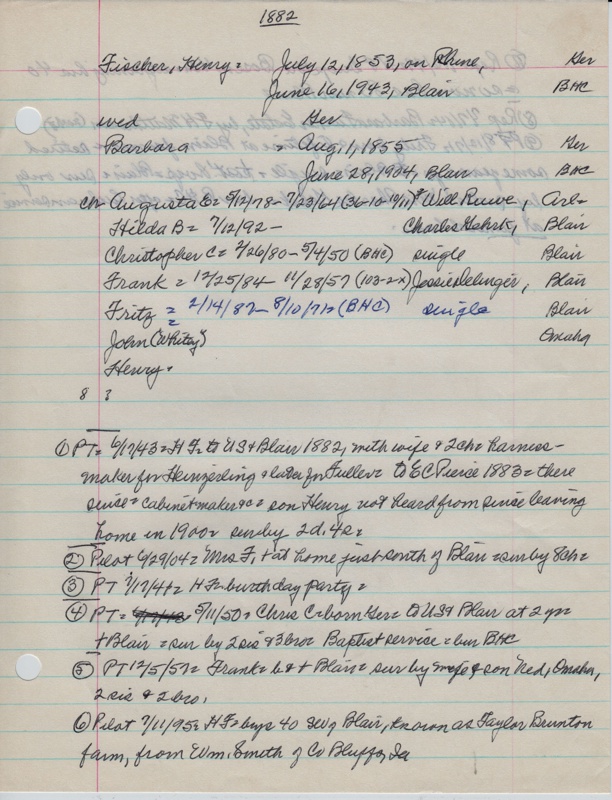 1882
Fischer, Henry = July 12, 1853, on Rhine, Ger
June 16, 1943, Blair BHC
wed Ger
Barbara = Aug, 1, 1855 Ger
June 28, 1904, Blair BHC
ch = Augusta C = 5/12/78 - 7/23/64 (36-10-19/11) Will Ruwe, Arl =
Hilda B = 7/12/92 - Charles Gahrk, Blair
Christopher C = 2/26/80 - 5/4/50 (BHC) single Blair
Frank = 12/25/84 - 11/28/57 (103-2-X) Jessie Delinger, Blair
Fritz = 2/14/87 - 8/10/71 = (BHC) single Blair
John (Whitey) Omaha
Henry =
8 ?
① PT = 6/17/43 = H F = to US & Blair 1882, with wife & 2 ch = harness-
maker for Heinzerling & later for Fuller = to E C Pierce 1883 = there
since = cabinet maker &c = son Henry not heard from since leaving
home in 1900 = sur by 2 d. 4 s =
② Pilot 6/29/04 = Mrs F, + at home just south of Blair = sur by 8 ch =
③ PT 7/17/4 = H F = birthday party =
④ PT = 5/11/50 = Chris C = born Ger = to US & Blair at 2 yr =
+ Blair = sur by 2 sis & 3 bro = Baptist service = bur BHC
⑤ PT 12/5/57 = Frank = b & + Blair = sur by wife & son Ned, Omaha,
2 sis & 2 bro,
⑥ Pilot 7/11/95 = H F = buys 40 SW of Blair, known as Taylor Brunton
farm, from Wm. Smith of Co Bluffs, Ia